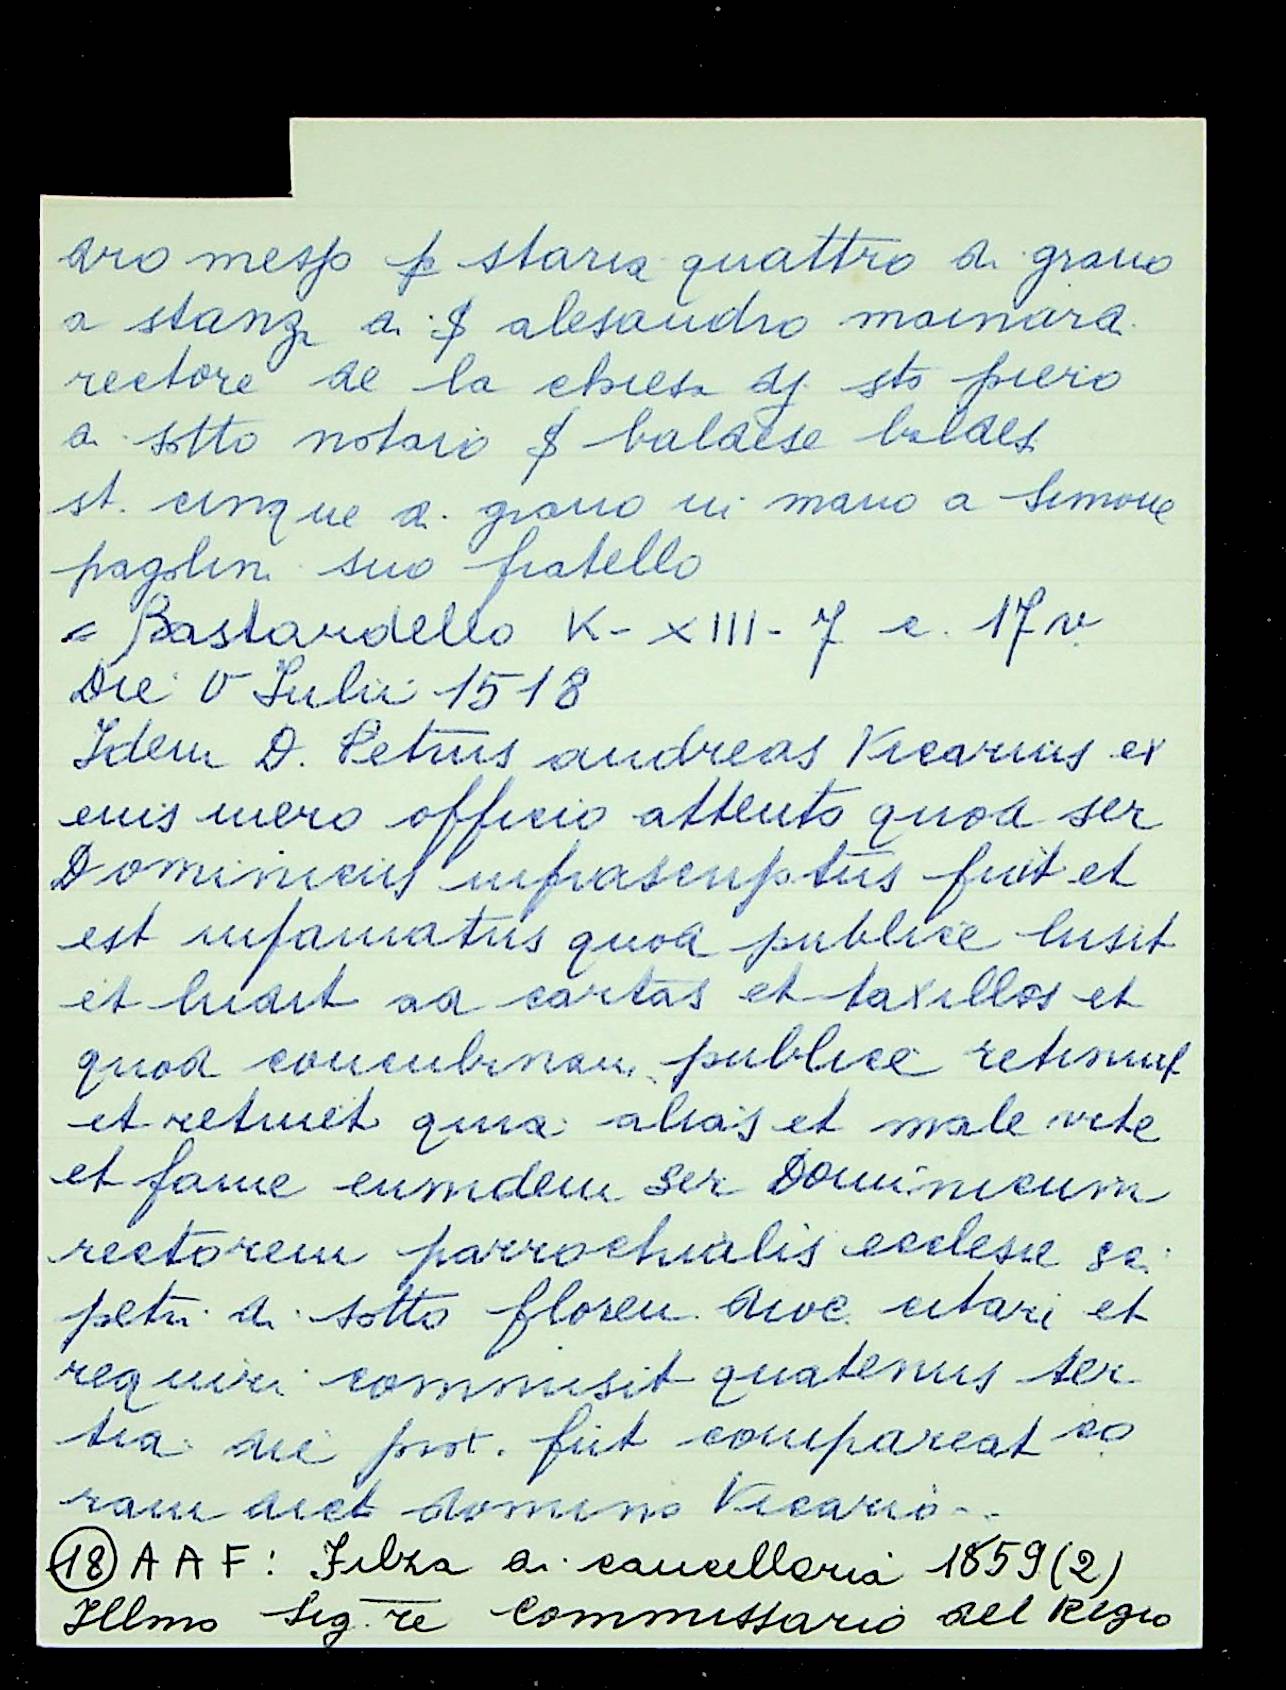 dro messo p staria quattro di grano
a stanza di ꝭ alesandro mainardi
rectore de la chiesa dj sto piero
di sotto notaio ꝭ baldese baldesi
st. cinque di grano in mano a Simone
pagolini suo fratello
= Bastardello K - XIII - 7 c. 17 v.
Die V Iulii 1518
Idem D. Petrus andreas Vicarius ex
eius mero officio attento quod ser
Dominicus infrascriptus fuit et
est infamatus quod publice lusit
et ludit ad cartas et taxillos et
quod concubinam publice retinuit
et retinet quia alias et male vite
et fame eumdem ser Dominicum
rectorem parrochialis ecclesie sci
petri di sotto floren. dioc. citari et
requiri commisit quatenus ter
tia die prox. fut compareat co
ram dict domino Vicario..
(18) A A F: Filza di cancelleria 1859 (2)
Illmo Sig.re Commissario del Regio